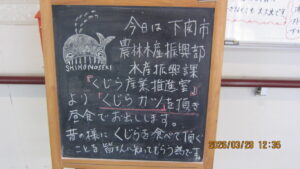 今日は 下関市
農林水産振興部
水産振興課
『くじら産業推進室』
より『くじらカツ』を頂き
昼食でお出しします。
昔の様に くじらを食べて頂ぐ
ことを 皆さんに知ってもらう為です。
SHIMONOSEKI
2026/03/26 12:35